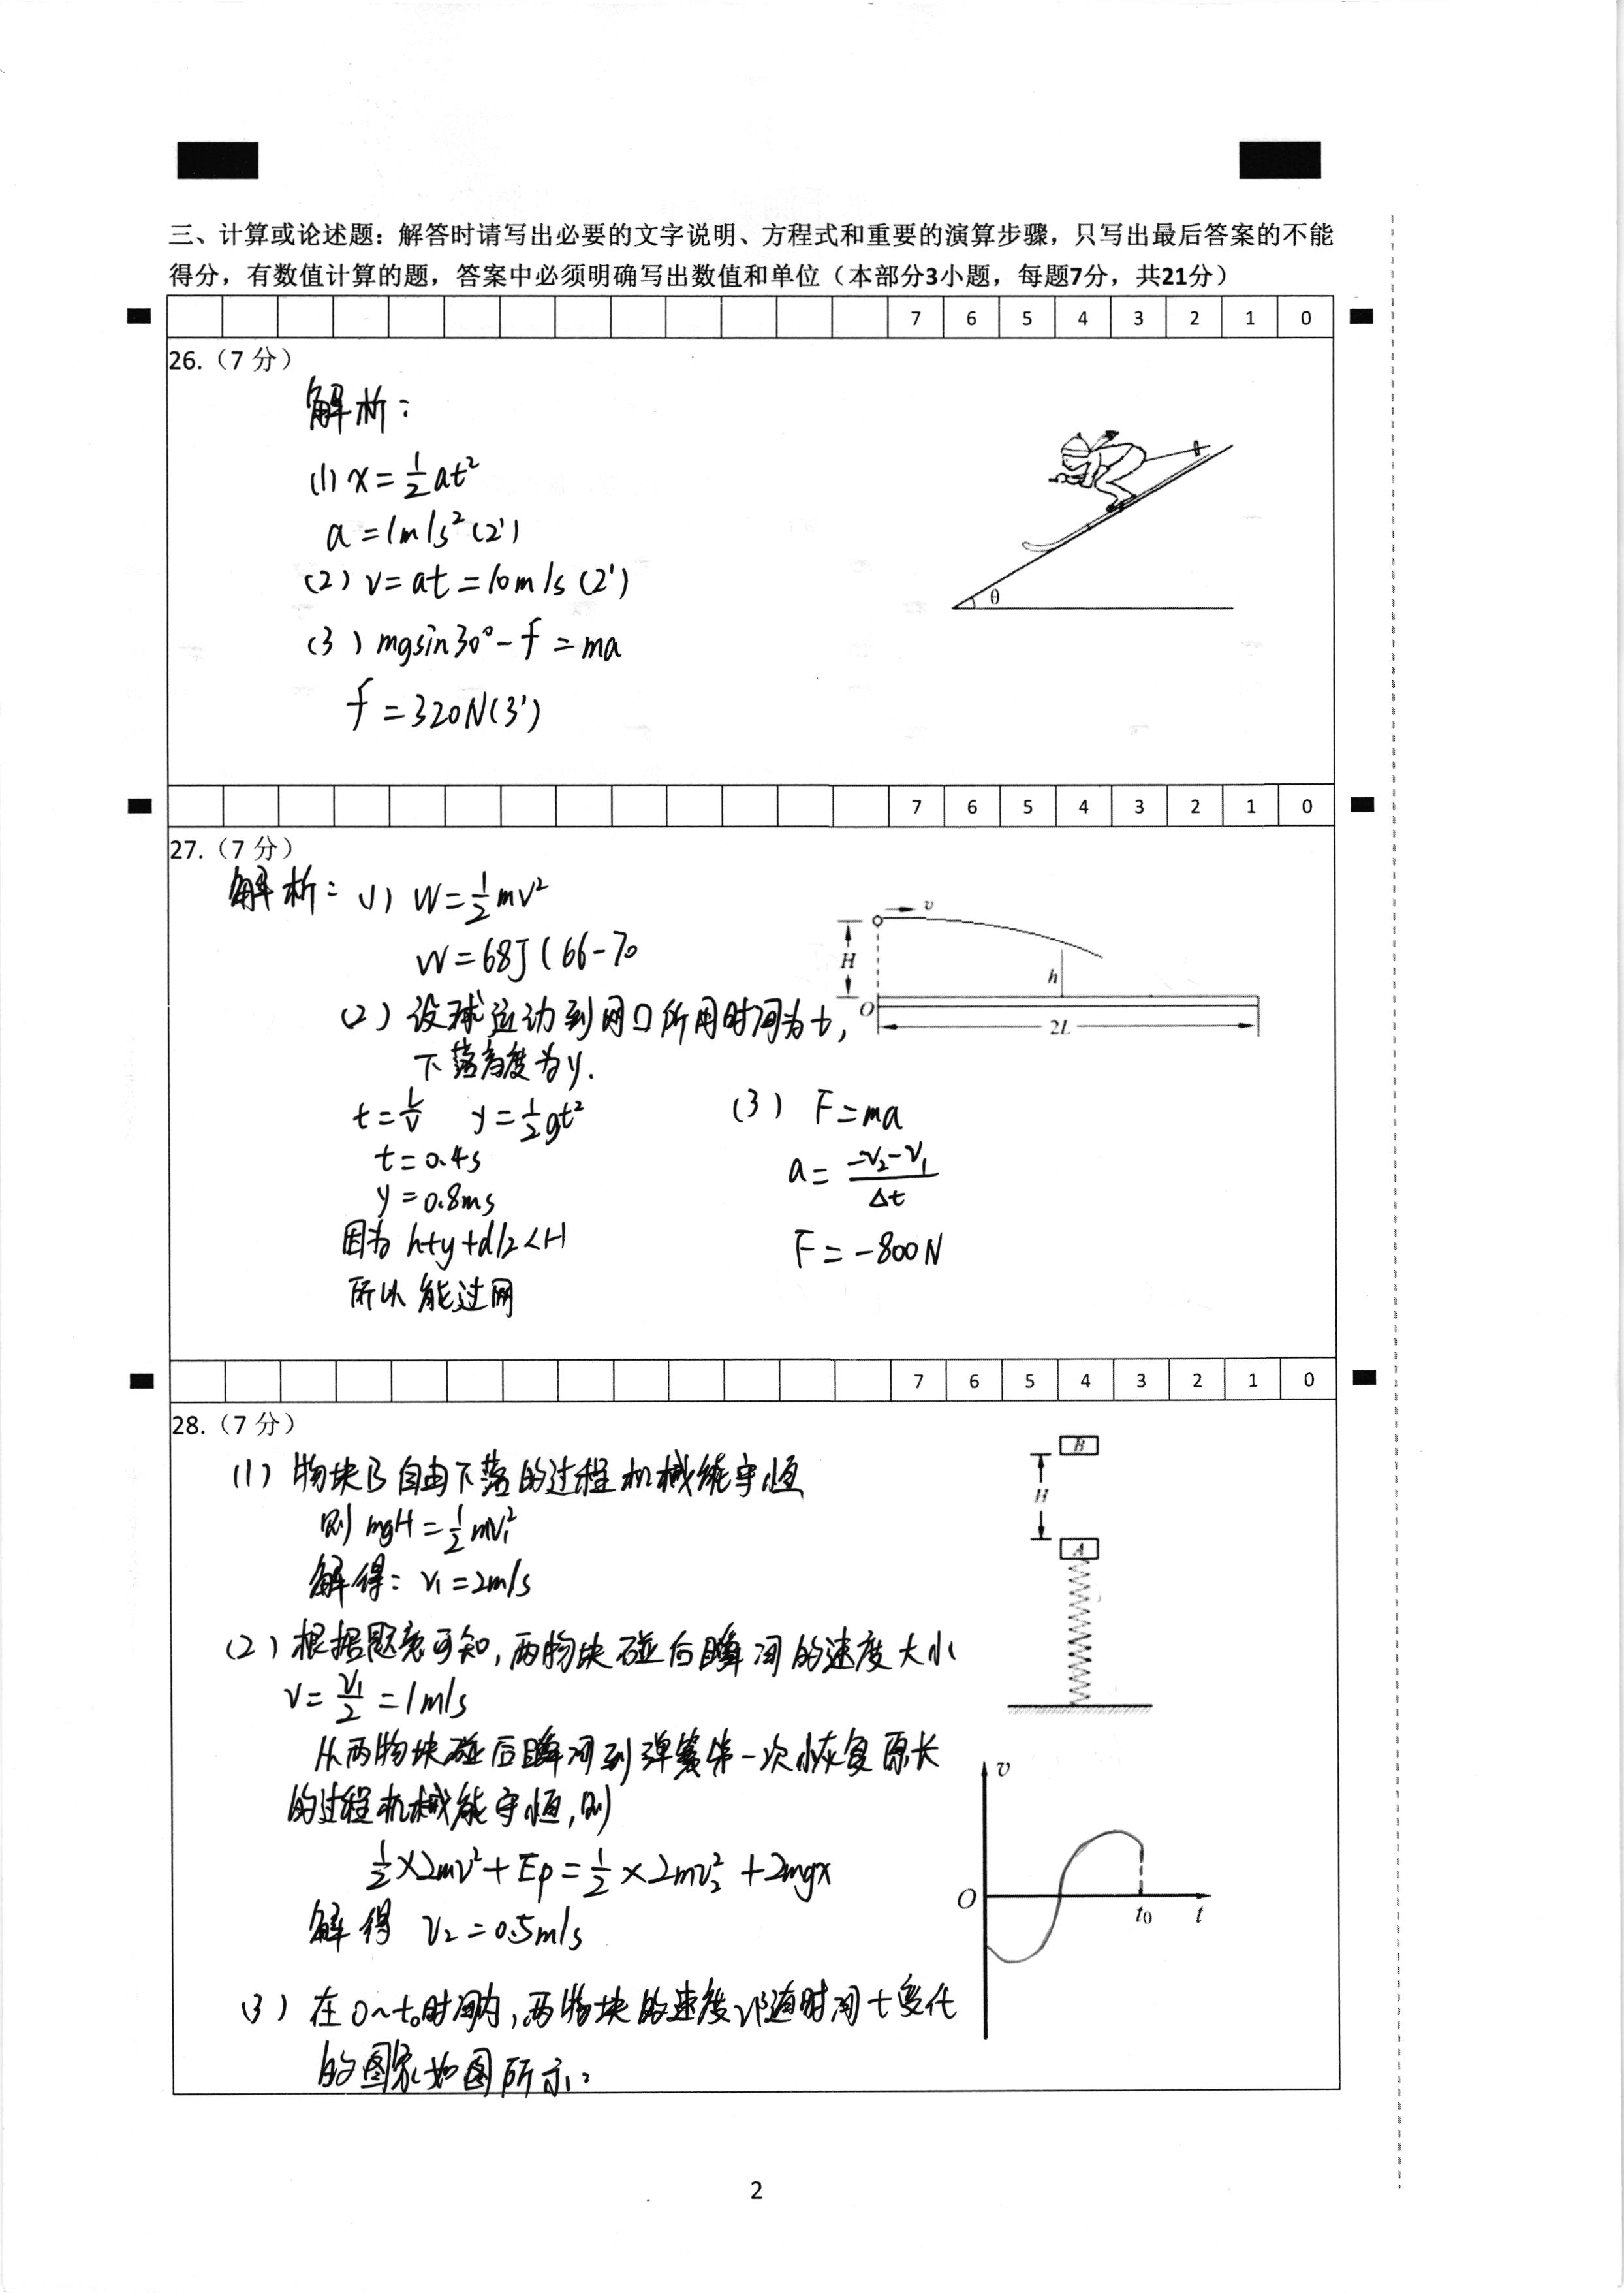 三、计算或论述题：解答时请写出必要的文字说明、方程式和重要的演算步骤，只写出最后答案的不能
得分，有数值计算的题，答案中必须明确写出数值和单位（本部分3小题，每题7分，共21分）
7 6 5 4 3 2 1 0
26.（7 分）
解析：
(1) x = 1/2 at²
a = 1m/s² (2')
(2) v = at = 10m/s (2')
(3) mgsin30° - f = ma
f = 320N (3')
θ
7 6 5 4 3 2 1 0
27.（7 分）
解析：(1) W = 1/2 mv²
W = 68J ( 66-70
(2) 设球运动到网口所用时间为t,
下落高度为y.
t = L/v y = 1/2 gt²
t = 0.4s
y = 0.8ms
因为 h+y+d/2<H
所以 能过网
(3) F = ma
a = (-v₂-v₁)/Δt
F = -800N
v
H
h
O
2L
7 6 5 4 3 2 1 0
28.（7 分）
(1) 物块B自由下落的过程机械能守恒
则 mgH = 1/2 mv₁²
解得：v₁ = 2m/s
(2) 根据题意可知，两物块碰后瞬间的速度大小
v = v₁/2 = 1m/s
从两物块碰后瞬间到弹簧第一次恢复原长
的过程机械能守恒，则
1/2 ×2mv² + Ep = 1/2 × 2mv₂² + 2mgx
解得 v₂ = 0.5m/s
(3) 在0~t₀时间内，两物块的速度v随时间t变化
的图象如图所示：
B
H
A
v
O
t₀
t
2